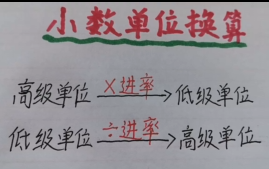 小数单位换算
高级单位 ×进率→ 低级单位
低级单位 ÷进率→ 高级单位